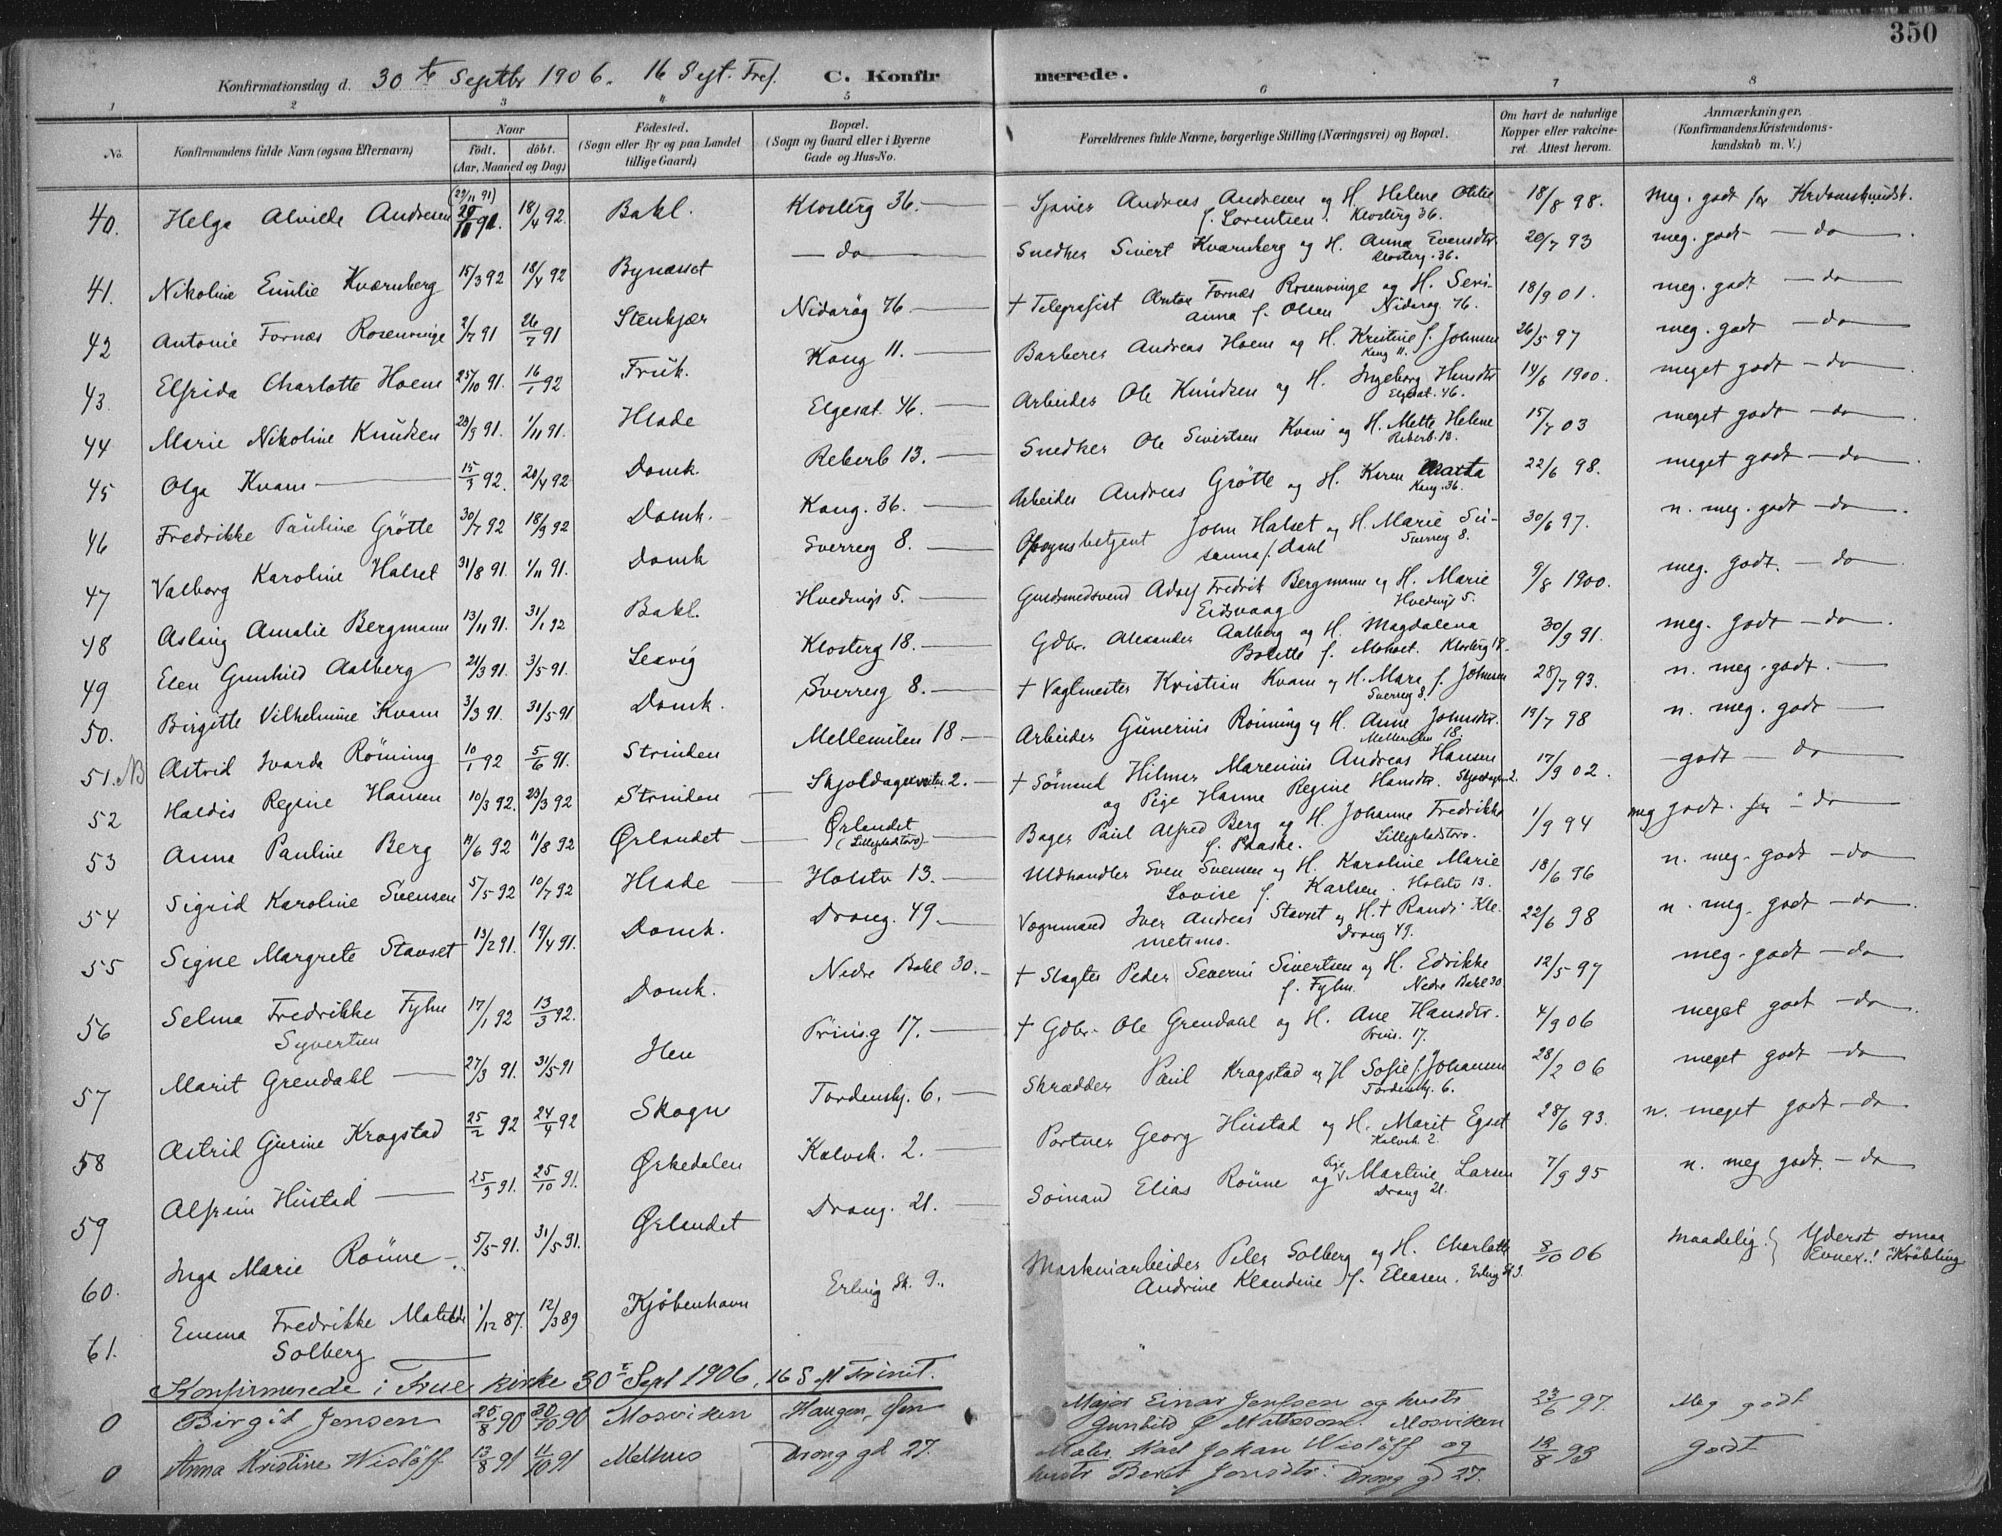 350
Konfirmationsdag d. 30te Septbr 1906. 16 S. eft. Tref. C. Konfir merede.
1 2 3 4 5 6 7 8
No. Konfirmandens fulde Navn (ogsaa Efternavn) Naar Födt. döbt. (Aar, Maaned og Dag) Födested. (Sogn eller By og paa Landet tillige Gaard) Bopæl. (Sogn og Gaard eller i Byerne Gade og Hus-No. Forældrenes fulde Navne, borgerlige Stilling (Næringsvei) og Bopæl. Om havt de naturlige Kopper eller vakcineret. Attest herom. Anmærkninger. (Konfirmandens Kristendomskundskab m. V.)
(29/11 91)
40. Helga Alvilde Andresen 29/11 91. 18/4 92. Bakl. Klosterg 36. Andreas Andresen og H. Helene Otilie 18/8 98. meg. godt for Krdomskundsk.
f. Lorentsen. Klosterg 36.
41. Nikoline Emilie Kværnberg 15/3 92 18/4 92 Bynæsset do Snedker Sivert Kværnberg og H. Anna Evensdtr 20/7 93 meg. godt do
Klosterg. 36.
42 Antonie Fornæs Rosenvinge 2/7 91 26/7 91 Stenkjær Nidarög 76 + Telegrafist Anton Fornæs Rosenvinge og H. Seri- 18/9 01. meg. godt do
anna f. Olsen Nidarög 76.
43. Elfrida Charlotte Hoem 25/10 91. 16/1 92 Fruk. Kong 11. Barberer Andreas Hoem og H. Kristine f. Johnsen 26/5 97 meg. godt do
Kong 11.
44 Marie Nikoline Knudsen 23/9 91. 1/11 91. Hlade Elgesat. 46. Arbeider Ole Knudsen og H. Ingeborg Hansdtr 14/6 1900. meget godt do
Elgesat. 46.
45 Olga Kvam 15/3 92. 20/4 92 Domk. Reberb 13. Snedker Ole Sivertsen Kvam og H. Mette Helene 15/7 03 meget godt do
Reberb. 13.
46 Fredrikke Pauline Grötte 30/7 92 18/9 92 Domk. Kong. 36. Arbeider Andreas Grötte og H. Karen Marta 22/6 98. meget godt do
Kong. 36.
47 Valborg Karoline Halset 31/8 91. 1/11 91. Domk Sverresg 8. Opsynsbetjent John Halset og H. Marie Su- 30/6 97. n. meg. godt do
sanna f. Dahl Sverresg 8.
48 Aslaug Amalie Bergmann 13/11 91. 31/1 92 Bakl. Hvedings 5. Guldsmedsvend Adolf Fredrik Bergmann og H. Marie 9/8 1900. meg. godt. do
Eidsvaag Hvedings 5.
49 Elen Gunhild Aalberg 21/3 91. 3/5 91. Lexvig Klosterg 18. Gdbr. Alexander Aalberg og H. Magdalena 30/9 91. meg. godt do
Bolette f. Klosterg 18.
50. Birgitte Vilhelmine Kvam 3/3 91. 31/5 91 Domk. Sverresg 8. + Vagtmester Kristian Kvam og H. Mara f. Johnsen 28/7 93. n. meg. godt.
Sverresg 8.
51. NB Astrid Ivarda Rönning 10/1 92 5/6 91. Strinden Mellemilen 18 Arbeider Gunerius Rönning og H. Anne Johnsdtr. 19/7 98 n. meg. godt
Mellemilen 18.
52 Haldis Regine Hansen 10/3 92. 23/3 92 Strinden Skjoldagerveiten 2. + Sömand Hilmer Marenius Andreas Hansen 17/9 02. godt do
og Pige Hanne Regine Hansdtr.
53 Anna Pauline Berg 11/6 92 11/8 92 Ørlandet Ørlandet (Lillegladstorv) Bager Paul Alfred Berg og H. Johanna Fredrikke 1/9 94 meg godt. for do
f. Paaske. Lillegladstorv.
54 Sigrid Karoline Svensen 5/5 92 10/7 92 Hlade Holstv 13. Uldhandler Sven Svensen og H. Karoline Marie 18/6 96 n. meg. godt do
Lovise f. Karlsen. Holstv 13.
55 Signe Margrete Stavset 13/2 91. 19/4 91. Domk. Drong. 49. Vognmand Iver Andreas Stavset og H. + Randi Kle- 22/6 98 n. meg. godt do
metsmo. Drong 49.
56 Selma Fredrikke Fyhn 17/1 92 13/3 92. Domk. Nedre Bakl 30. + Slagter Peder Severin Sivertsen og H. Edrikke 12/5 97 meg. godt do
Syvertsen f. Fyhn. Nedre Bakl 30
57 Marit Grendahl 27/3 91. 31/5 91 Hen Prinsg 17. + Gdbr. Ole Grendahl og H. Ane Hansdtr. 4/9 06 meget godt do
Prins. 17.
58 Astrid Gurine Kragstad 25/2 92 24/4 92 Skogn Tordenskj. 6. Skrædder Paul Kragstad og H Sofie f. Johansen 28/2 06 meget godt do
Tordenskj. 6.
59 Alfsein Hustad 25/9 91. 25/10 91. Ørkedalen Kalvsk. 2. Portner Georg Hustad og H. Marit Egset 28/6 93. n. meget godt do
Kalvsk 2.
60. Inga Marie Rönne 5/5 91. 31/5 91. Ørlandet Drong. 21. Sömand Elias Rönne og Pige Martine Larsen 7/9 95 n. meg godt. do
Drong 21.
61. Emma Fredrikke Matilde 1/12 87. 12/3 89 Kjöbenhavn Erling Sk. 9. Maskinarbeider Peter Solberg og H. Charlotte 8/10 06 maadelig. Yderst smaa
Solberg Andrine Klaudine f. Eleasen. Erling Sk 9. Evner! Kröbling
Konfirmerede i Frue kirke 30te Sept 1906, 16 S. eft Trinit.
0 Birgit Jensen 25/8 90 20/10 90 Mosviken Haugen, Major Einar Jenssen og hustr. 23/6 97. Meg godt
Gunhild f Matteson. Mosviken
0 Anna Kristine Wislöff 13/8 91 11/10 91 Melhus Drong gd 27. Maler Karl Johan Wislöff og 12/8 93 godt
hustr Beret Jonsdtr. Drong gd 27.